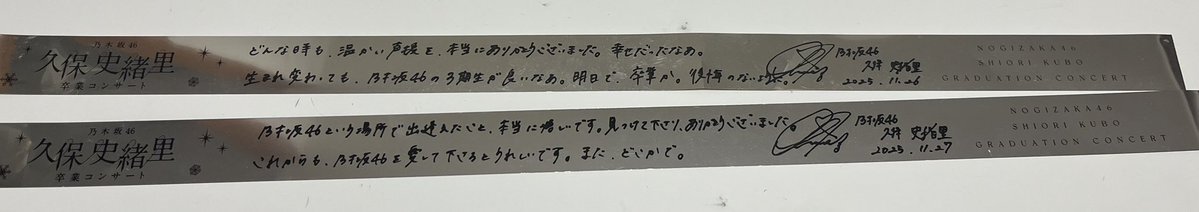 乃木坂46
久保史緒里
卒業コンサート
どんな日時も、温かい声援を、本当にありがとうございました。幸せだったなあ。
生まれ変わっても、乃木坂46の3期生が良いなあ。明日で、卒業か。後悔のないように。
乃木坂46
久保 史緒里
2025.11.26
NOGIZAKA46
SHIORI KUBO
GRADUATION CONCERT
乃木坂46
久保史緒里
卒業コンサート
乃木坂46という場所で出逢えたこと、本当に嬉しいです。見つけて下さり、ありがとうございました
これからも、乃木坂46を愛して下さるとうれしいです。また、どこかで。
乃木坂46
久保 史緒里
2025.11.27
NOGIZAKA46
SHIORI KUBO
GRADUATION CONCERT